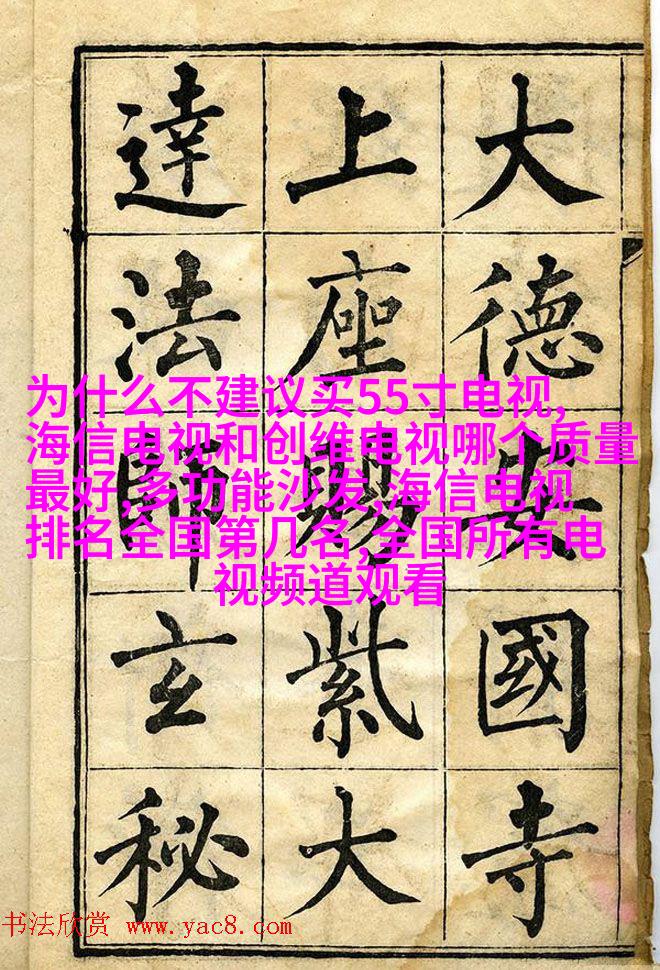 大德安國寺
上座賜紫大
達法師玄秘
为什么不建议买55寸电视,
海信电视和创维电视哪个质量
最好,多功能沙发,海信电视
排名全国第几名,全国所有电
视频道观看
书法欣赏 www.yac8.com